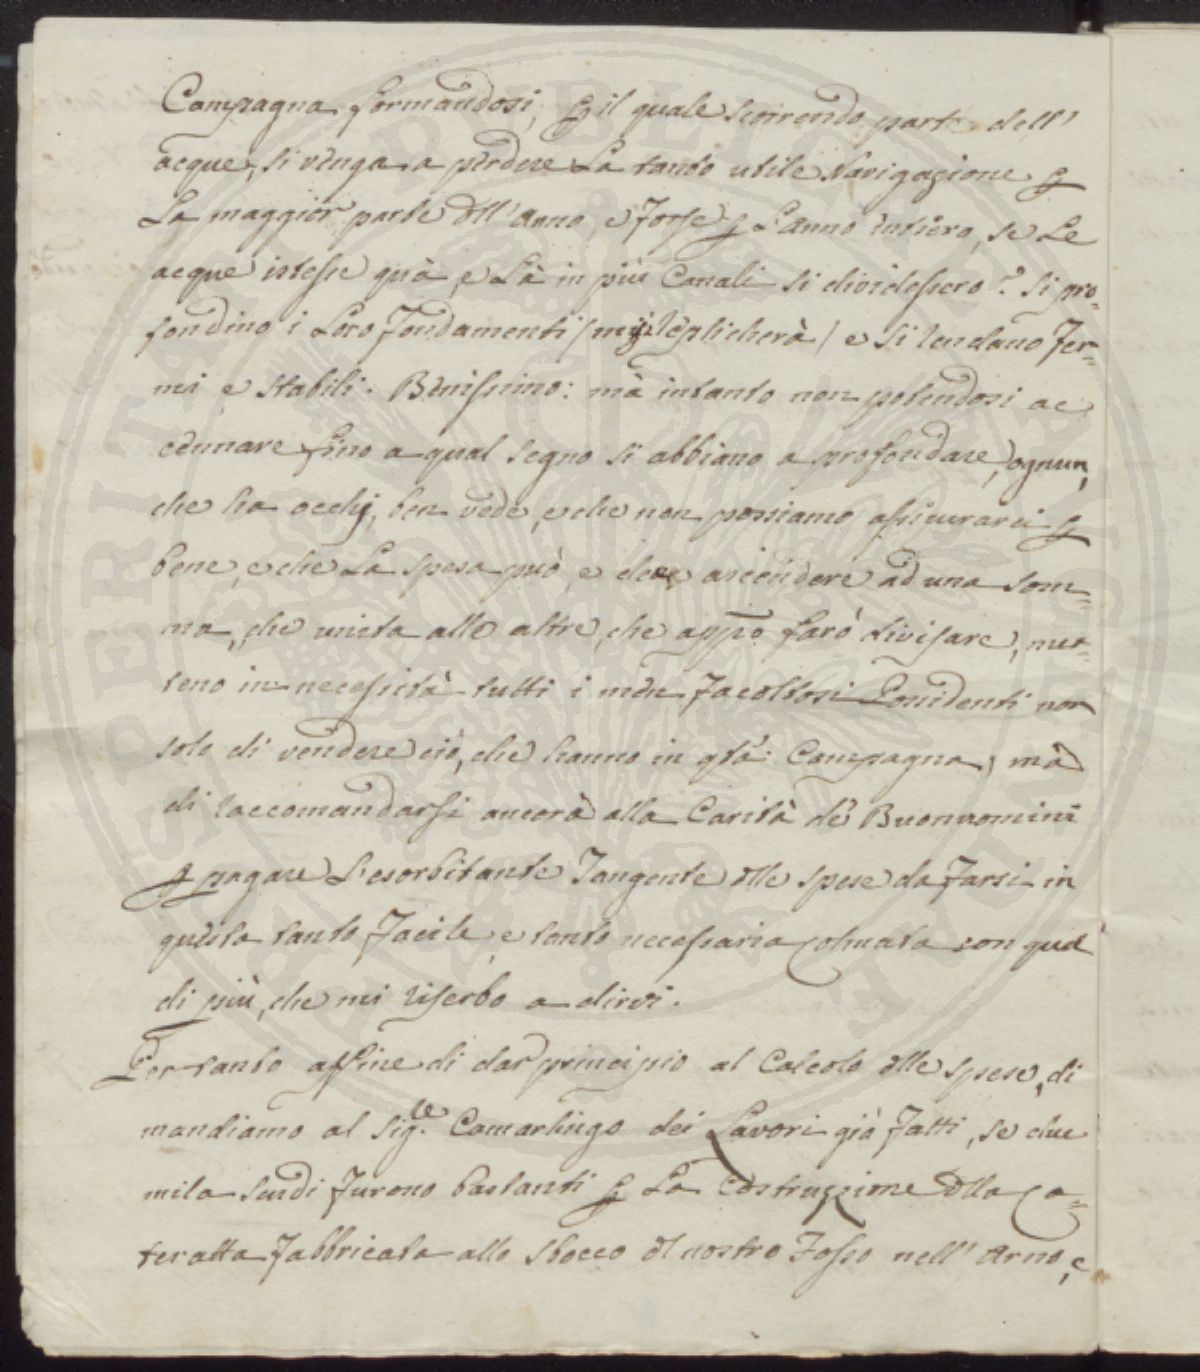 Campagna formandosi, p il quale scorrendo parte dell'
acque, si venga a perdere La tanto utile Navigazione p
La maggior parte dll' anno, e forse p L'anno intiero, se Le
acque istesse quà, e Là in più Canali si dividessero? Si pro=
fondino i Loro fondamenti (mi si replicherà) e si rendano fer=
mi e stabili. Benissimo: mà intanto non potendosi ac
cennare fino a qual segno si abbiano a profondare, ognun,
che ha occhj, ben vede, e che non possiamo assicurarci p
bene, e che La spesa può, e deve ascendere ad una som=
ma, che unita alle altre, che appo farò divisare, met=
teno in necessità tutti i men facoltosi Possidenti non
solo di vendere ciò, che hanno in qta Campagna, mà
di raccomandarsi ancora alla Carità de' Buonuomini
p pagare L'esorbitante Tangente dlle spese da farsi in
questa tanto facile, e tanto necessaria colmata con quel
di più, che mi riserbo a dirvi.
Per tanto affine di dar principio al Calcolo dlle spese, di
mandiamo al Sig.re Camarlingo dei Lavori già fatti, se due
mila Scudi furono bastanti p La Costruzzione dlla Ca=
teratta fabbricata allo sbocco dl nostro Fosso nell' Arno, e
PERITAT
PUBLICAE
AUGUSTAE